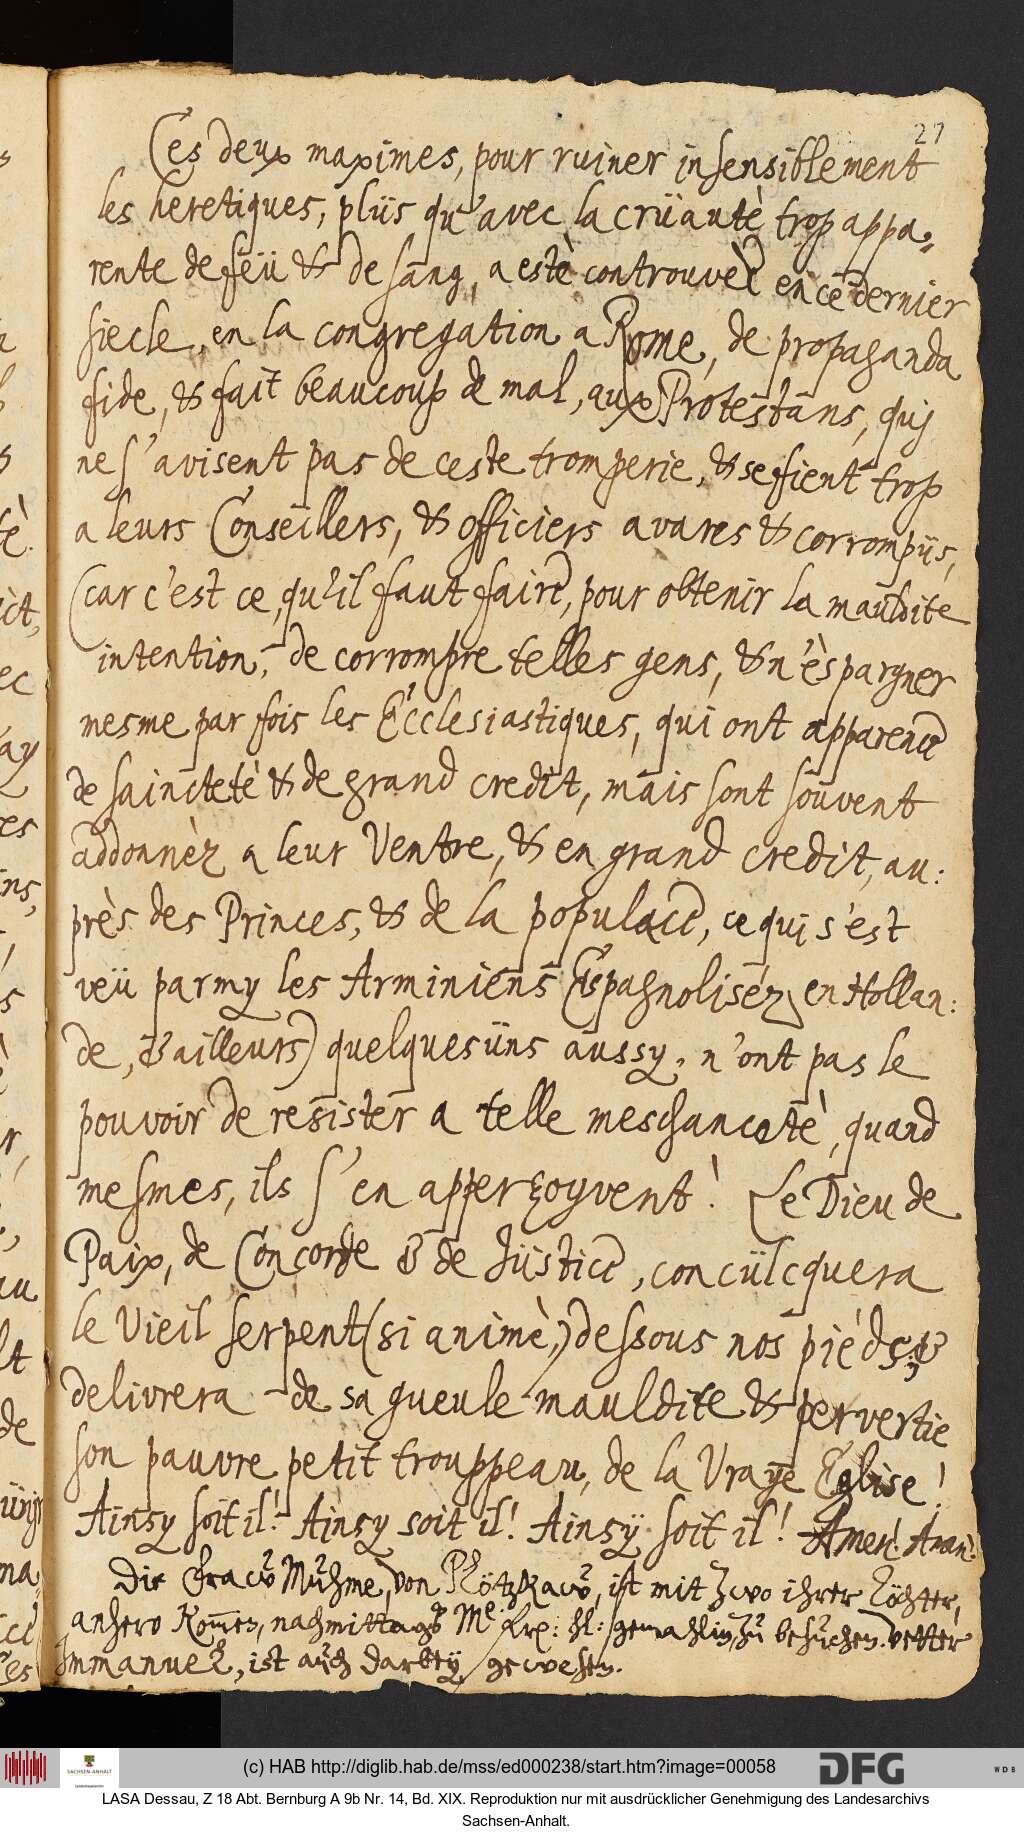 27
Ces deux maximes, pour ruiner insensiblement
les heretiques, plüs qu'avec la crüautè trop appa=
rente de feü & de sang, a estè controuvèe en ce dernier
siecle, en la congregation a Rome, de propaganda
fide, & fait beaucoup de mal, aux Protestans, quj
ne s'avisent pas de ceste tromperie, & se fient trop
a leurs Conseillers, & officiers avares & corrompüs,
(car c'est ce, qu'il faut faire, pour obtenir la mauldite
intention, de corrompre telles gens, & n'èspargner
mesme par fois les Ecclesiastiques, qui ont apparence
de saincteté & de grand credit, mais sont souvent
addonnèz a leur Ventre, & en grand credit, au:
près des Princes, & de la populace, ce qui s'est
veü parmy les Arminiens Espagnolisèz en Hollan:
de, & ailleurs) quelquesüns aussy, n'ont pas le
pouvoir de resister a telle meschancetè, quand
mesmes, ils s'en apperçoyvent! Le Dieu de
Paix, de Concorde & de Jüstice, concülcquera
le Vieil serpent (si animè,) dessous nos piéds, &
delivrera de sa gueule mauldite & pervertie
son pauvre petit trouppeau, de la Vraye Eglise!
Ainsy soit il! Ainsy soit il! Ainsÿ soit il! Amen! Aman!
Die Fraw Muhme, von Plötzkaw, ist mit zwo ihrer Töchter,
anhero kom̄en, nachmittags Me: hertz: hl: gemahlin, zu besuchen. Vetter
Immanuel, ist auch darbey gewesen.
(c) HAB http://diglib.hab.de/mss/ed000238/start.htm?image=00058
SACHSEN-ANHALT
DFG
WDB
LASA Dessau, Z 18 Abt. Bernburg A 9b Nr. 14, Bd. XIX. Reproduktion nur mit ausdrücklicher Genehmigung des Landesarchivs
Sachsen-Anhalt.